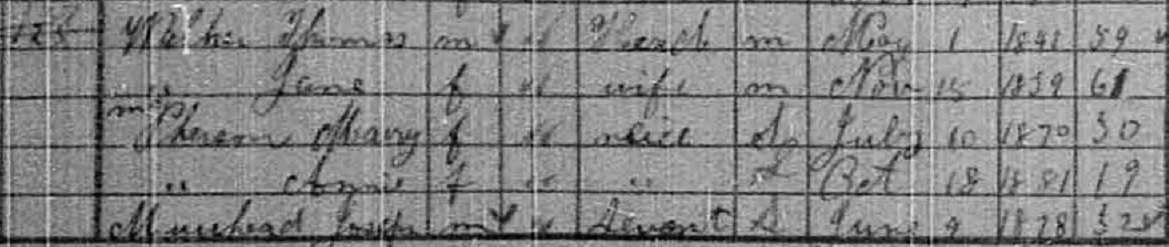 Thomas m w Head m May 1 1841 59
" Jane f w wife m Nov 15 1839 61
McPherson Mary f w neice S July 10 1870 30
" Annie f w " S Oct 18 1881 19
Muirhead m w Servant S June 9 1878